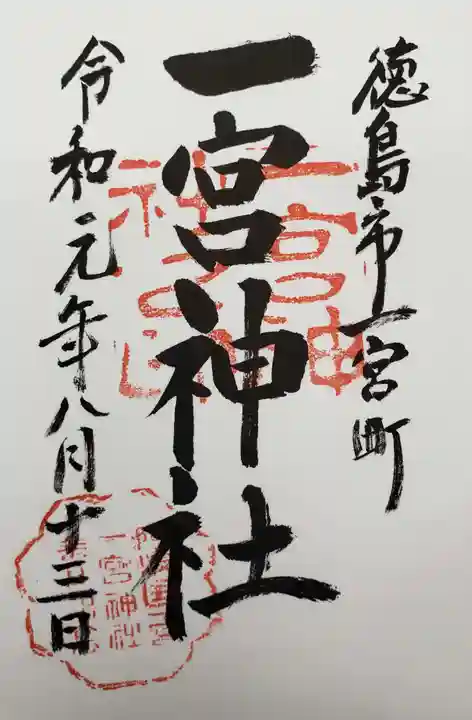 徳島市一宮町
一宮神社
令和元年八月十三日
一宮神社